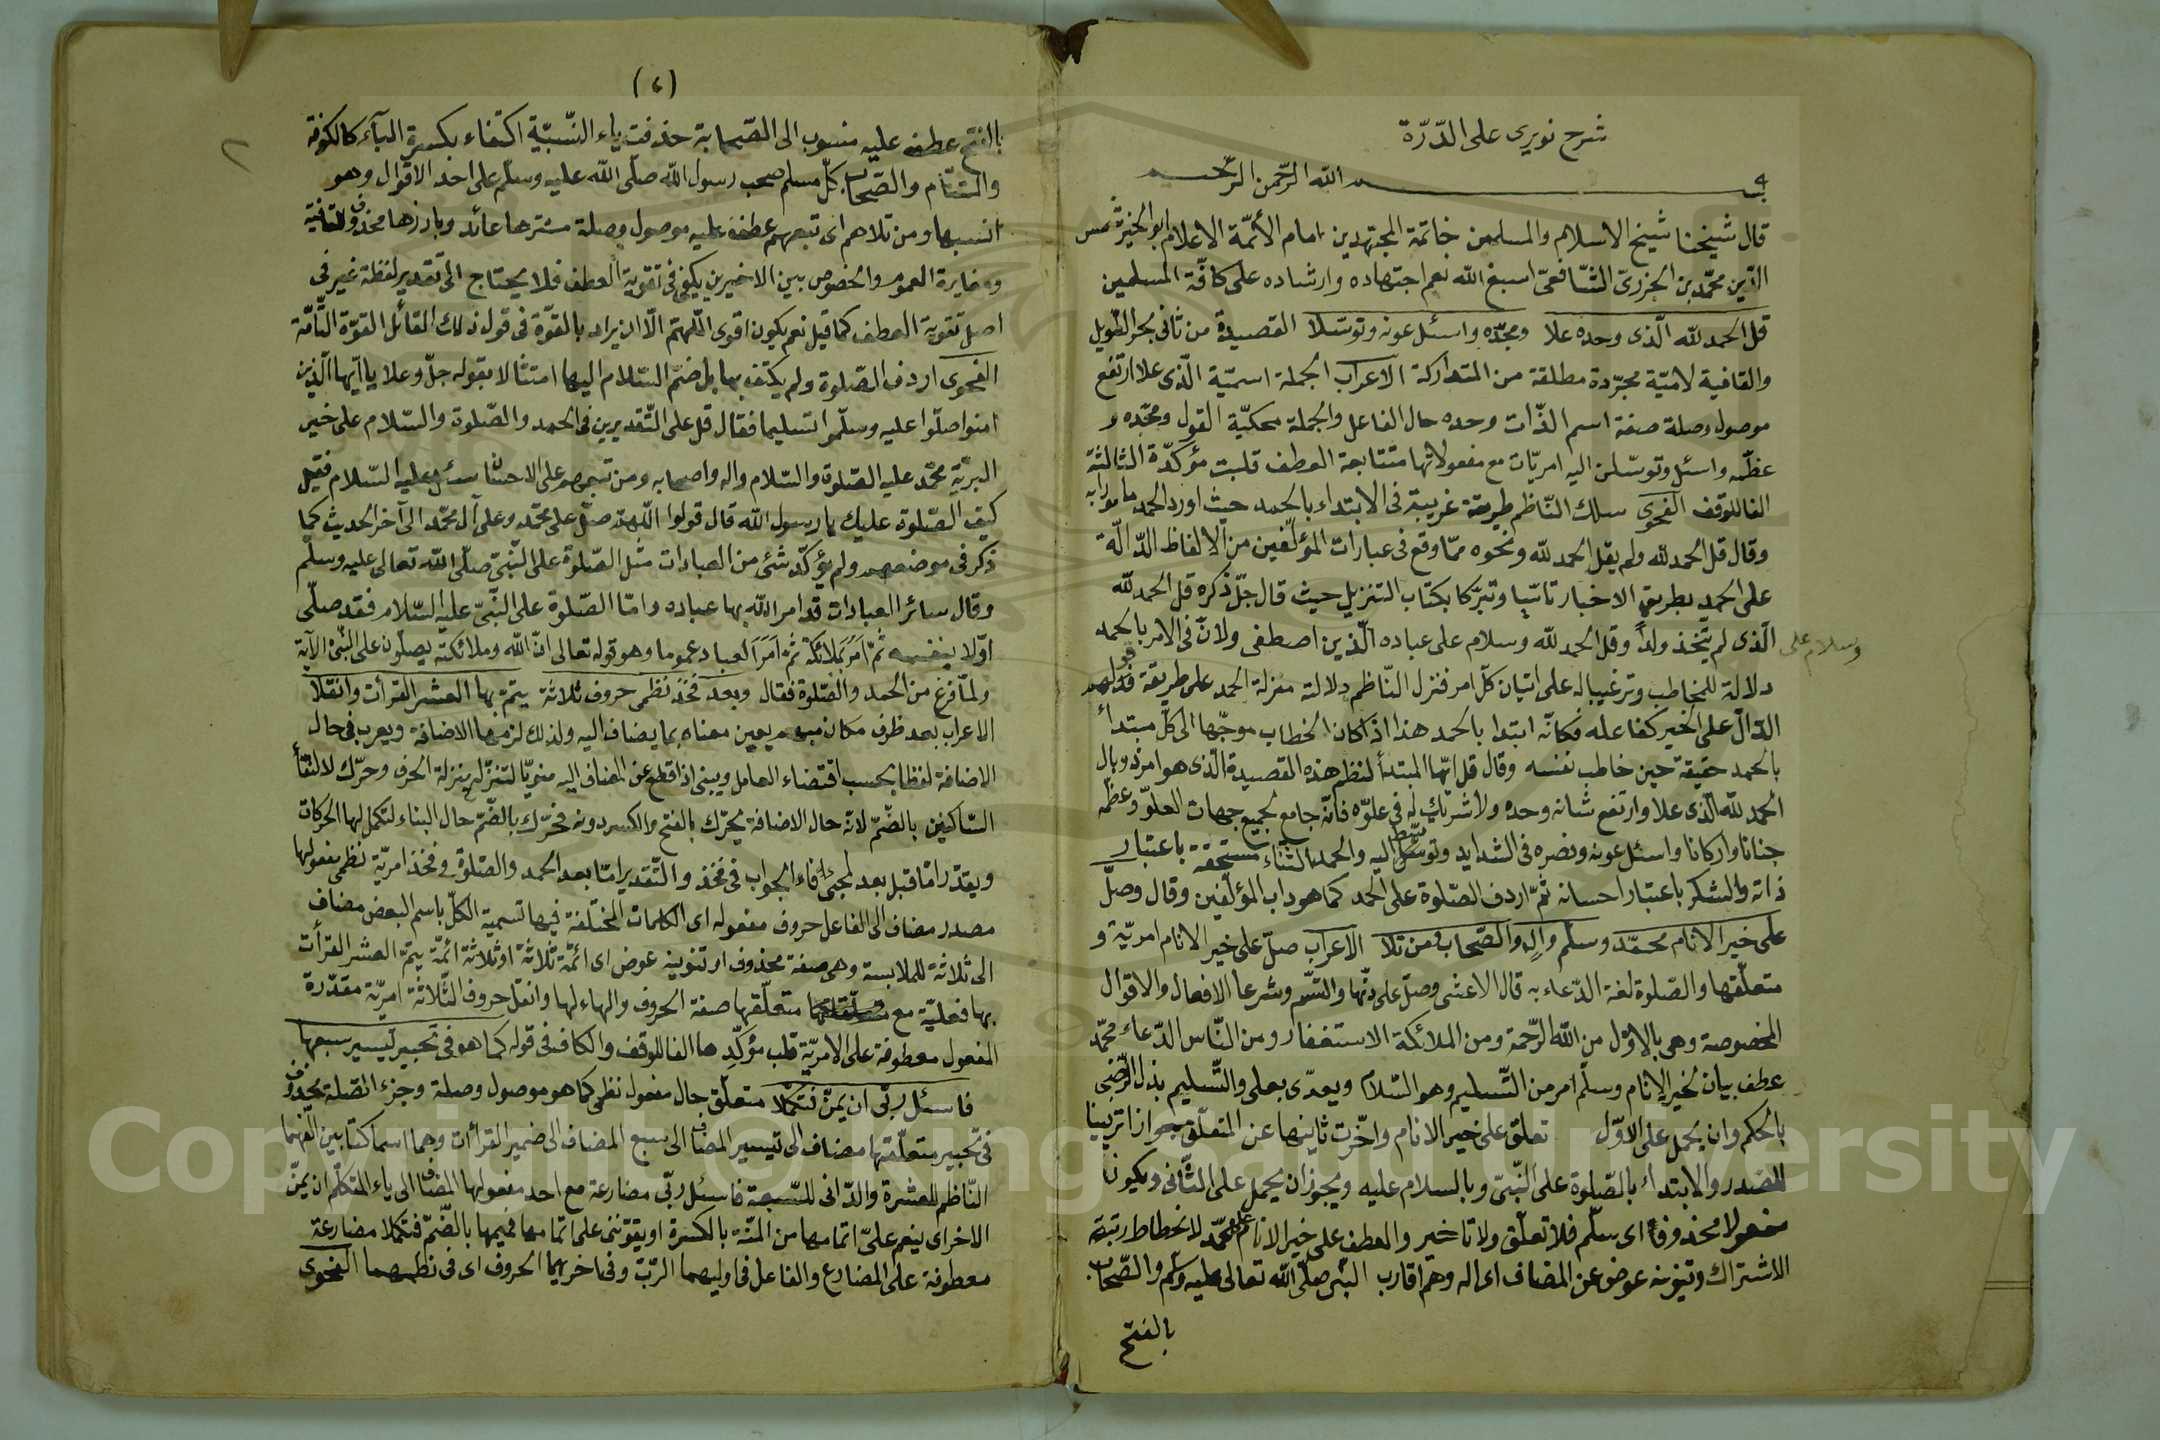 شرح نويرى على الدّرّة
بسم الله الرّحمن الرّحيم
قال شيخنا شيخ الاسلام والمسلمين خاتمة المجتهدين امام الأئمّة الاعلام ابو الخير شمس
الدّين محمّد بن الجزرىّ الشّافعىّ اسبغ الله نعم اجتهاده وارشاده على كافّة المسلمين
قل الحمد لله الّذى وحده علا ومجّده واسئل عونه وتوسّلا القصيدة من ثانى بحر الطّويل
والقافية لاميّة مجرّدة مطلقة من المتداركة الاعراب الجملة اسميّة الّذى علا ارتفع
موصول وصلة صفة اسم الذّات وحده حال الفاعل والجملة محكيّة القول ومجّده و
عظّمه واسئل وتوسّلن اليه امريّات مع مفعولاتها متتابعة العطف قلبت مؤكّدة الثالثة
الفا للوقف الفحوى سلك النّاظم طريقة غريبة فى الابتداء بالحمد حيث اورد الحمد مامورا به
وقال قل الحمد لله ولم يقل الحمد لله ونحوه ممّا وقع فى عبارات المؤلّفين من الالفاظ الدّالّة
على الحمد بطريق الاخبار تاسّيا وتبرّكا بكتاب التنزيل حيث قال جلّ ذكره قل الحمد لله
الّذى لم يتّخذ ولدًا وقل الحمد لله وسلام على عباده الّذين اصطفى ولانّ فى الامر بالحمد
وسلام على
دلالة للمخاطب وترغيبا له على اتيان كلّ امر فنزل النّاظم دلالته منزلة الحمد على طريقة قولهم
الدّالّ على الخير كفاعله فكانّه ابتدا بالحمد هذا اذ كان الخطاب موجّها الى كلّ مبتدأ
بالحمد حقيقة حين خاطب نفسه وقال قل ايّها المبتدأ لنظم هذه القصيدة الّذى هو امر ذو بال
الحمد لله الّذى علا وارتفع شانه وحده ولا شريك له فى علوّه فانّه جامع لجميع جهات العلوّ وعظّمه
جنانا واركانا واسئل عونه ونصره فى الشدايد وتوسّل اليه والحمد الثّناء مستحقّه باعتبار
ذاته والشكر باعتبار احسانه ثمّ اردف الصّلوة على الحمد كما هو داب المؤلّفين وقال وصلّ
على خير الانام محمّد وسلّم واله والصّحاب ومن تلا الاعراب صلّ على خير الانام امريّة و
متعلّقها والصّلوة لغة الدّعاء به قال الاعشى وصلّ على دنّها وارتسم وشرعا الافعال والاقوال
المخصوصة وهى بالاوّل من الله الرّحمة ومن الملائكة الاستغفار ومن النّاس الدّعاء محمّد
عطف بيان لخير الانام وسلّم امر من التّسليم وهو السّلام ويعدّى بعلى والتّسليم بذل الرّضى
بالحكم وان يحمل على الاوّل تعلّق على خير الانام واخّرت ثانيها عن المتعلّق
للصّدر والابتداء بالصّلوة على النّبىّ وبالسلام عليه ويجوز ان يحمل على الثّانى ويكون
مفعولا محذوفا اى سلّم فلا تعلّق ولا تاخير والعطف على خير الانام على محمّد لانحطاط رتبة
الاشتراك وتنوينه عوض عن المضاف اى اله وهم اقارب النّبى صلّى الله تعالى عليه وسلّم والصّحاب
بالفتح
(٢)
بالفتح عطف عليه منسوب الى الصّحابة حذفت ياء النّسبيّة اكتفاء بكسرة الباء كالكوفة
والشّام والصّحاب كلّ مسلم صحب رسول الله صلّى الله عليه وسلّم على احد الاقوال وهو
انسبها ومن تلاهم اى تبعهم عطف عليه موصول وصلة مستترها عائد وبارزها محذوف للقافية
ومغايرة العموم والخصوص بين الاخيرين يكفى فى تقوية العطف فلا يحتاج الى تقدير لفظة غير فى
اصل تقوية العطف كما قيل نعم يكون اقوى اللّهمّ الّا ان يراد بالقوّة فى قول ذلك القائل القوّة التّامّة
الفحوى اردف الصّلوة ولم يكتف بها بل ضمّ السّلام اليها امتثالا بقوله جلّ وعلا يا ايّها الّذين
امنوا صلّوا عليه وسلّموا تسليما فقال قل على التّقديرين فى الحمد والصّلوة والسّلام على خير
البريّة محمّد عليه الصّلوة والسّلام واله واصحابه ومن تبعهم على الاحسان سئل عليه السّلام فقيل
كيف الصّلوة عليك يا رسول الله قال قولوا اللّهمّ صلّ على محمّد وعلى آل محمّد الى آخر الحديث كما
ذكر فى موضعه ولم يؤكّد شئ من العبادات مثل الصّلوة على النّبىّ صلّى الله تعالى عليه وسلّم
وقال سائر العبادات قد امر الله بها عباده وامّا الصّلوة على النّبىّ عليه السّلام فقد صلّى
اوّلا بنفسه ثمّ امر ملائكته ثمّ امر العباد عموما وهو قوله تعالى انّ الله وملائكته يصلّون على النّبىّ الآية
ولمّا فرغ من الحمد والصّلوة فقال وبعد فخذ نظمى حروف ثلاثة يتمّ بها العشر القرأت وانقلا
الاعراب بعد ظرف مكان مبهم يعين معناه بما يضاف اليه ولذلك لزمها الاضافة ويعرب فى حال
الاضافة لفظا بحسب اقتضاء العامل ويبنى اذا قطع عن المضاف اليه منويّا لتنزّله منزلة الحرف وحرّك لالتقأ
السّاكنين بالضّمّ لانّه حال الاضافة يحرّك بالفتح والكسر دونه فحرّك بالضّمّ حال البناء لتكمل لها الحركات
ويقدّر امّا قبل بعد لمجئ فاء الجواب فى فخذ والتّقدير امّا بعد الحمد والصّلوة وفخذ امريّة نظمى مفعولها
مصدر مضاف الى الفاعل حروف مفعوله اى الكلمات المختلفة فيها تسمية الكلّ باسم البعض مضاف
الى ثلاثة للملابسة وهى صفة محذوف او تنوينه عوض اى ائمّة ثلاثة او ثلاثة ائمّة يتمّ العشر القرأت
بها فعليّة مع متعلّقها صفة الحروف والهاء لها وانقل حروف الثّلاثة امريّة مقدّرة
المفعول معطوفة على الامريّة قلب مؤكّدها الفا للوقف والكاف فى قوله كما هو فى تحبير تيسير سبعها
فاسئل ربّى ان يمنّ فتكملا متعلّق حال مفعول نظمى كما هو موصول وصلة وجزء الصّلة محذوف
فى تحبير متعلّقها مضاف الى تيسير المضاف الى سبع المضاف الى ضمير القرأت وهما اسما كتابين الّفهما
النّاظم للعشرة والدّانى للسّبعة فاسئل ربّى مضارعة مع احد مفعولها المضاف الى ياء المتكلّم ان يمنّ
الاخر اى ينعم علىّ اتمامها من المنّة بالكسرة او يقوّينى على اتمامها فميمها بالضّمّ فتكملا مضارعة
معطوفة على المضارع والفاعل فى اوليهما الرّبّ وفى اخريهما الحروف اى فى نظمهما الفحوى
Copyright © King Saud University